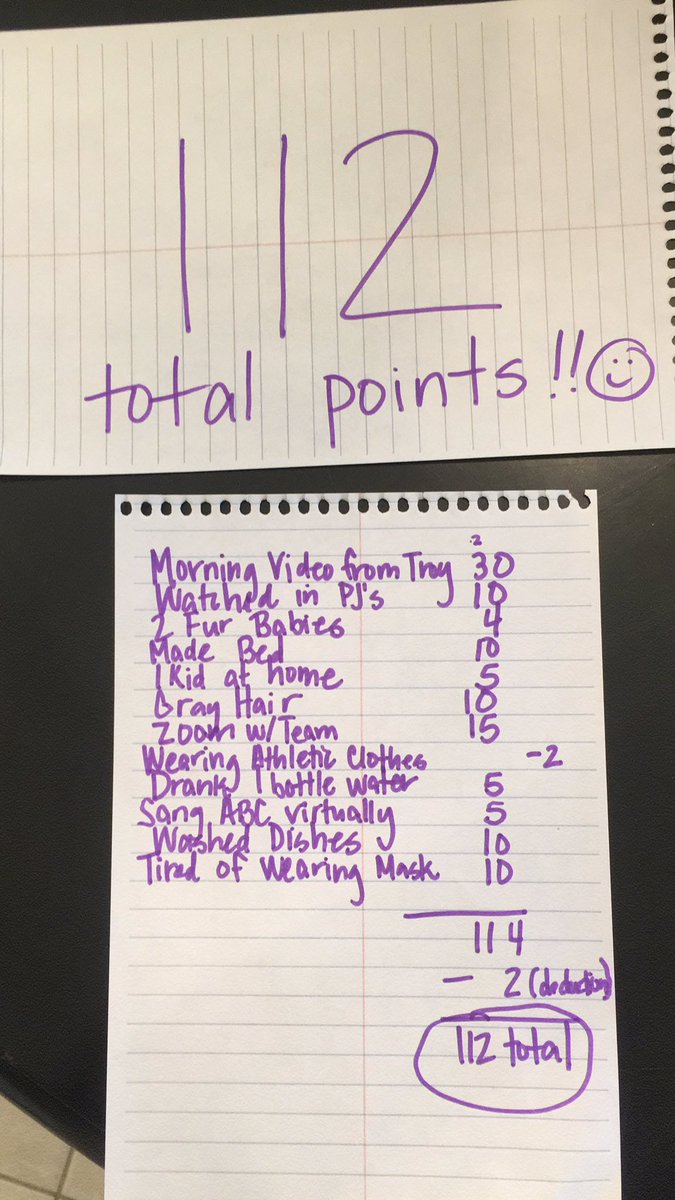 112
total points!!
2
Morning Video from Troy 30
Watched in PJ's 10
2 Fur Babies 4
Made Bed 10
1 Kid at home 5
Gray Hair 10
Zoom w/Team 15
Wearing Athletic Clothes -2
Drank 1 bottle water 5
Sang ABC virtually 5
Washed Dishes 10
Tired of Wearing Mask 10
114
- 2 (deduction)
112 total